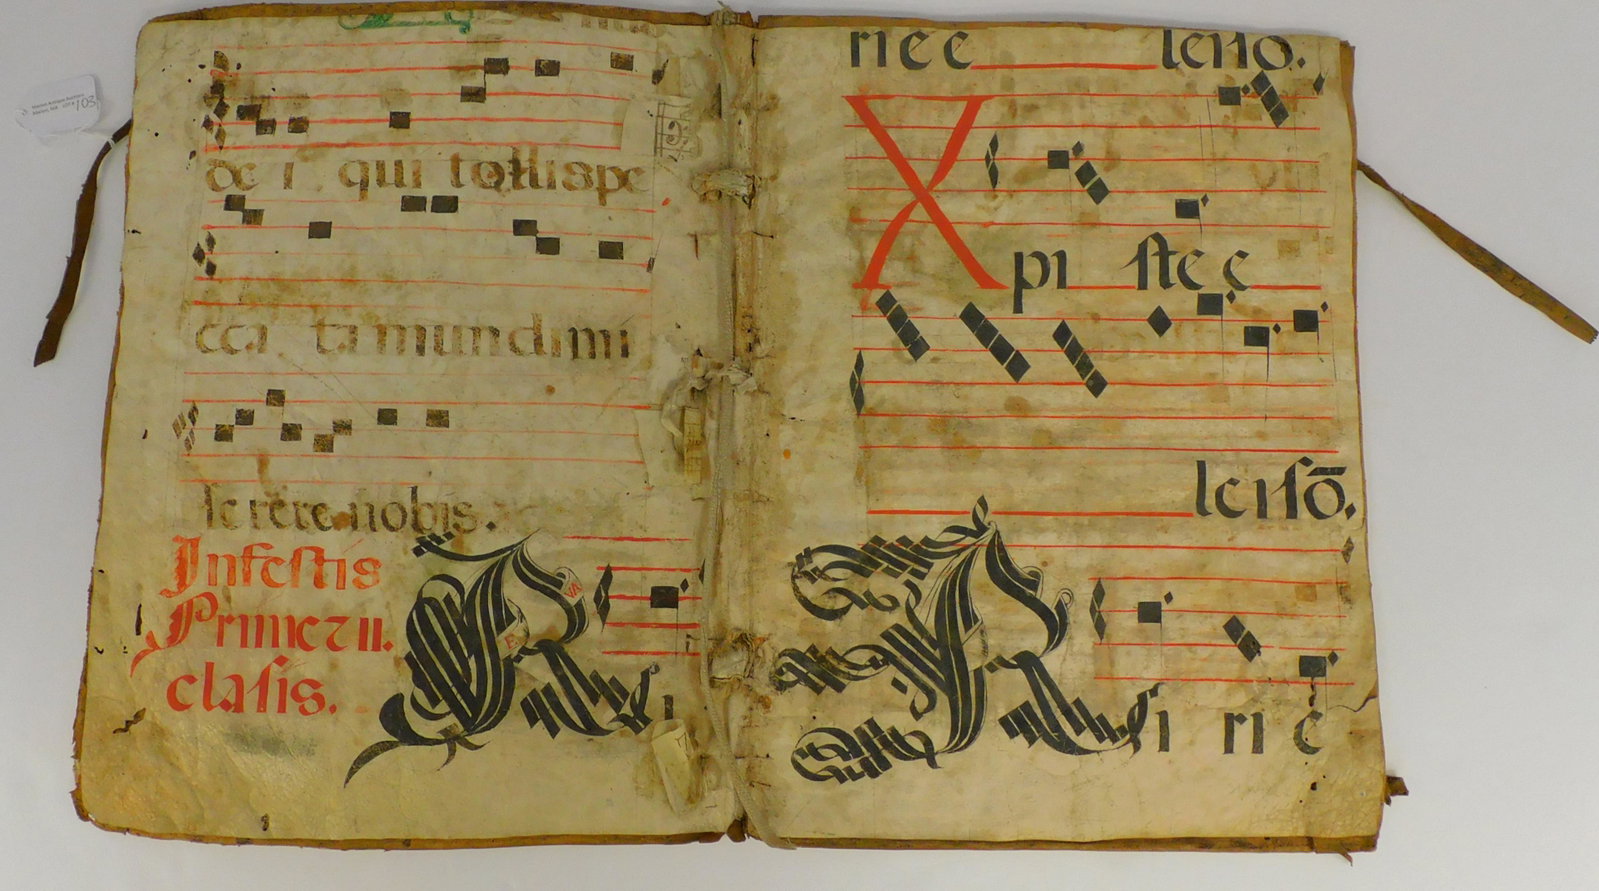 de i qui tollis pe
cca ta mundi mi
se rere nobis.
In festis
Prime z ii.
clasis.
Ki
ri e e leiso.
Xpi ste e
leisō.
Ki ri e
103